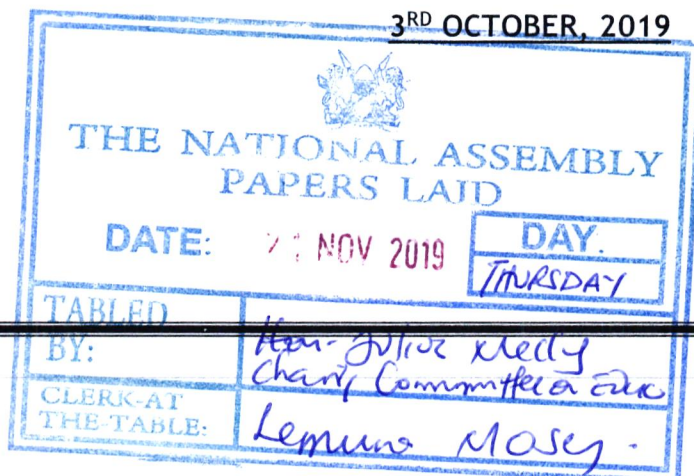 3RD OCTOBER, 2019
THE NATIONAL ASSEMBLY
PAPERS LAID
DATE: NOV 2019
DAY.
THURSDAY
TABLED
BY:
Hon. Julius Melly
Chair, Committee
CLERK-AT
THE-TABLE:
Lemuna Mosy.